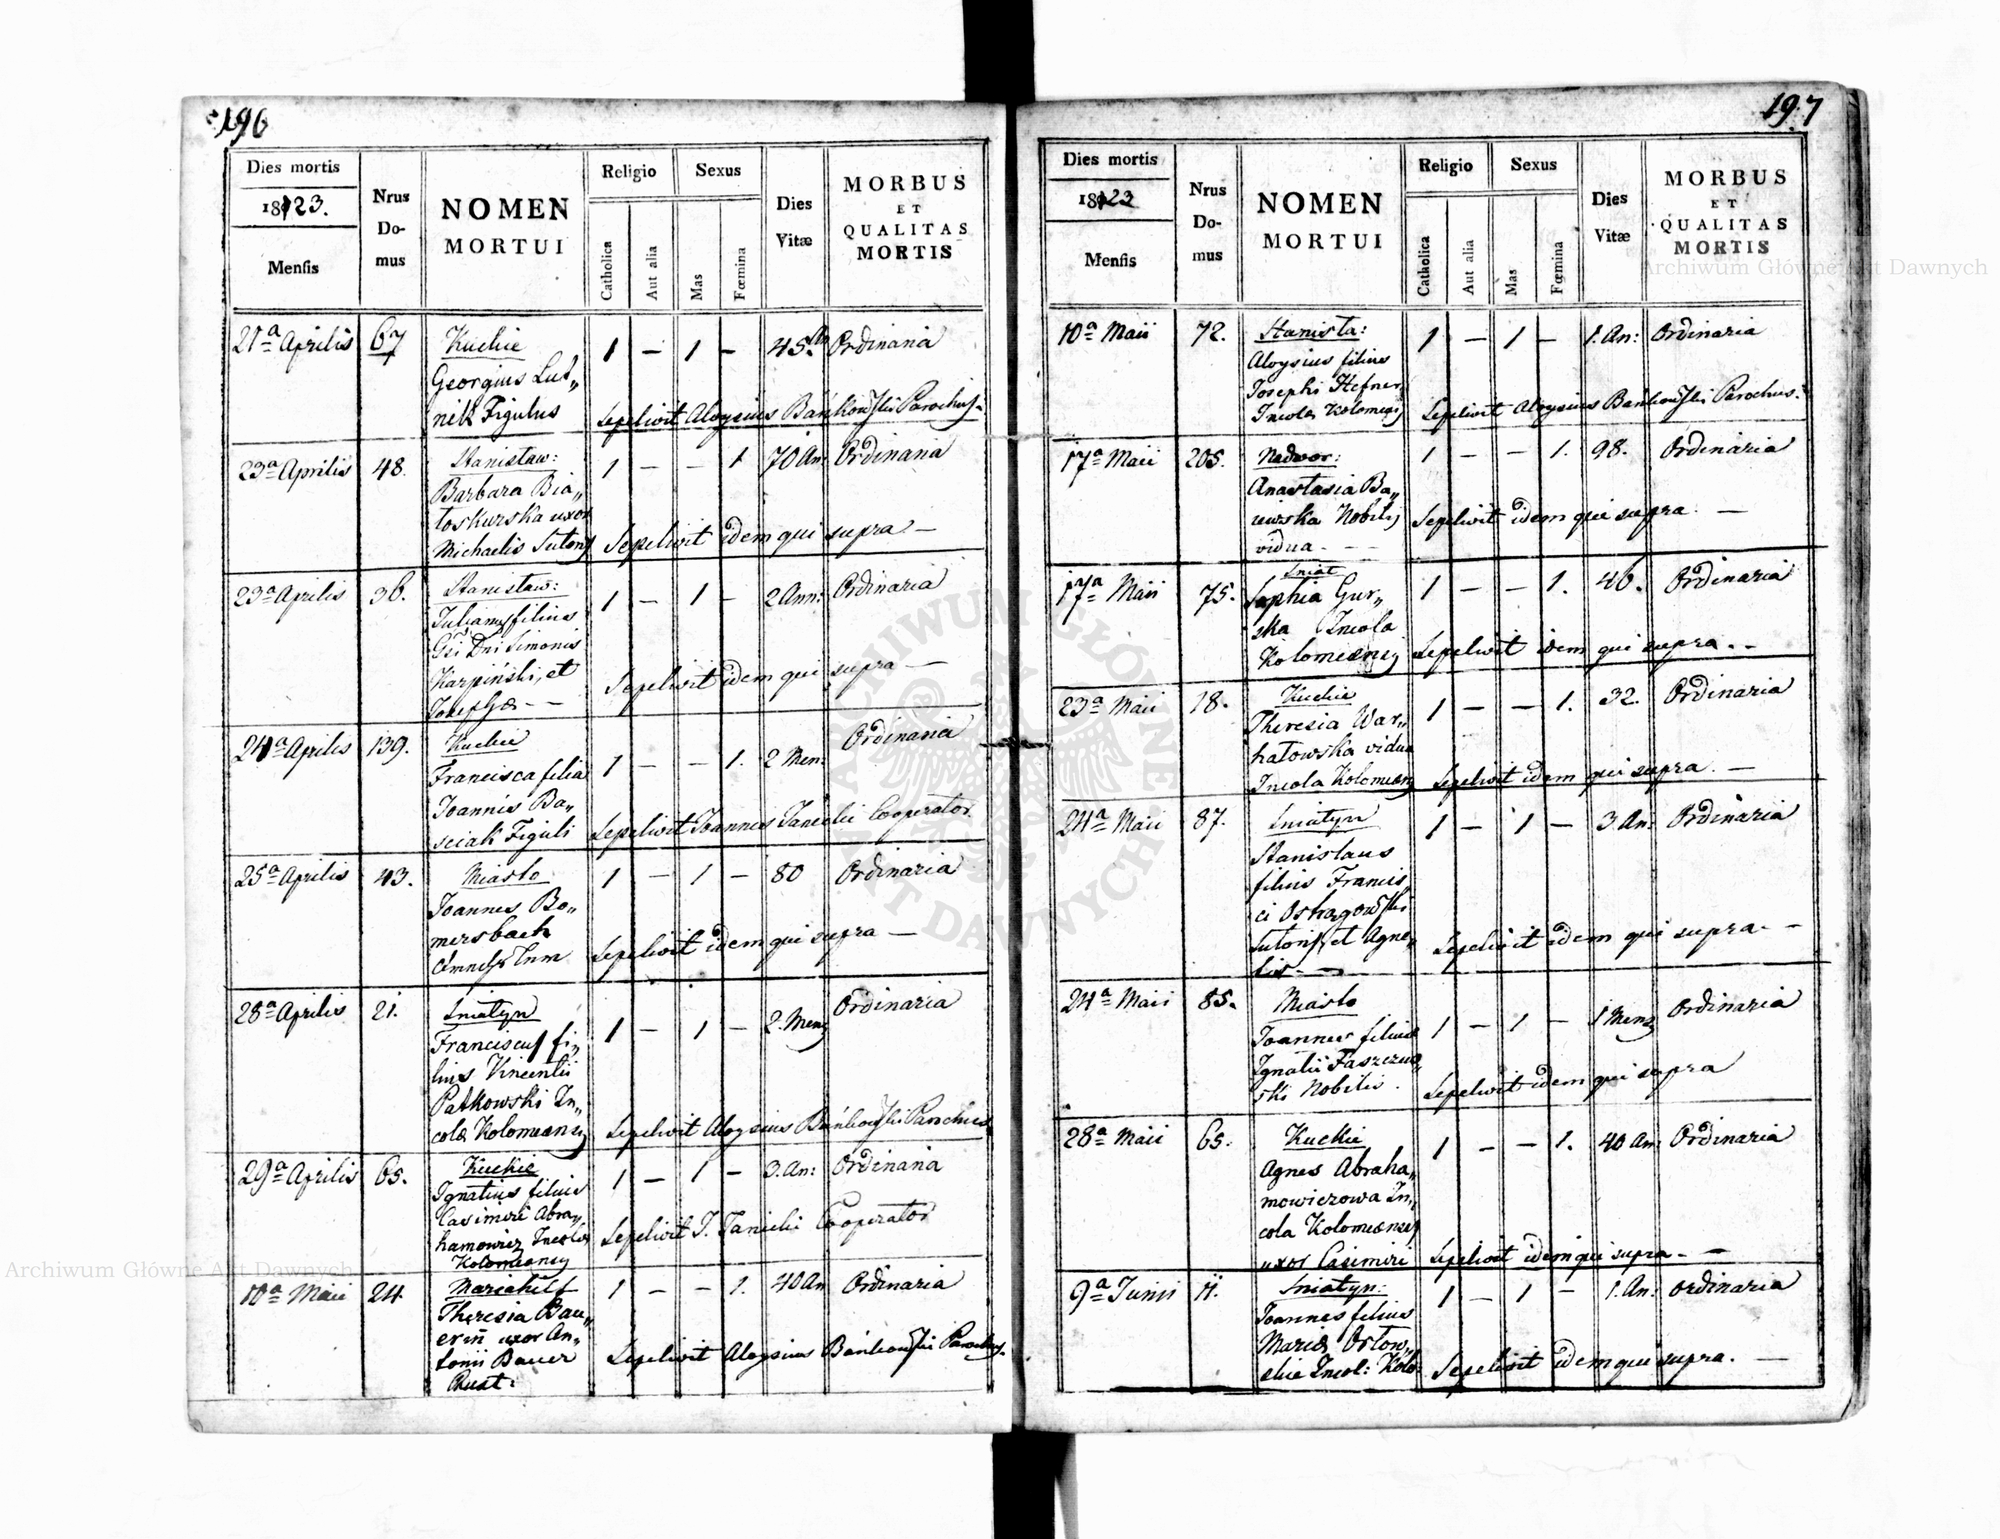 196
Dies mortis
1823.
Mensis
Nrus Do-mus
NOMEN
MORTUI
Religio
Catholica
Aut alia
Sexus
Mas
Fœmina
Dies Vitæ
MORBUS
ET
QUALITAS
MORTIS
21a Aprilis 67 Kuckie 1 — 1 — 45 An Ordinaria
Georgius Lut„
nik Figulus
Sepelivit Aloysius Bańkowski Parochus.
23a Aprilis 48. Stanisław: 1 — — 1 70 An: Ordinaria
Barbara Bia„
łoskurska uxor
Michaelis Sutoris
Sepelivit idem qui supra —
23a Aprilis 36. Stanisław: 1 — 1 — 2 Ann: Ordinaria
Julianus filius
Gsi Dni Simonis
Karpiński, et
Josephæ — —
Sepelivit idem qui supra —
24a Aprilis 139. Kuckie 1 — — 1. 2 Men: Ordinaria
Francisca filia
Joannis Ba„
sciak Figuli
Sepelivit Joannes Janicki Cooperator.
25a Aprilis 43. Miasto 1 — 1 — 80 Ordinaria
Joannes Bo„
mersbach
Sepelivit idem qui supra —
28a Aprilis 21. Sniatyn 1 — 1 — 2. Mens Ordinaria
Franciscus fi„
lius Vincentii
Patkowski In„
colæ Kolomeensis
Sepelivit Aloysius Bańkowski Parochus
29a Aprilis 65. Kuckie 1 — 1 — 3. An: Ordinaria
Ignatius filius
Casimiri Abra„
hamowicz Incolæ
Kolomeensis
Sepelivit J. Janicki Cooperator
10a Maii 24 Mariahilf 1 — — 1. 40 An Ordinaria
Theresia Bau„
erin uxor An„
tonii Bauer
Rust:
Sepelivit Aloysius Bańkowski Parochus.
197
Dies mortis
1823
Mensis
Nrus Do-mus
NOMEN
MORTUI
Religio
Catholica
Aut alia
Sexus
Mas
Fœmina
Dies Vitæ
MORBUS
ET
QUALITAS
MORTIS
10a Maii 72. Stanisła: 1 — 1 — 1. An: Ordinaria
Aloysius filius
Josephi Hefner
Incolæ Kolomeens
Sepelivit Aloysius Bańkowski Parochus.
17a Maii 205. Nadwor: 1 — — 1. 98. Ordinaria
Anastasia Ba„
iewska Nobilis
vidua. — —
Sepelivit idem qui supra. —
17a Maii 75. Sniat 1 — — 1. 46. Ordinaria
Sophia Gur„
ska Incola
Kolomeensis
Sepelivit idem qui supra. —
23a Maii 18. Kuckie 1 — — 1. 32. Ordinaria
Theresia War„
hatowska vidua
Incola Kolomeens
Sepelivit idem qui supra. —
24a Maii 87. Sniatyn 1 — 1 — 3 An: Ordinaria
Stanislaus
filius Francis„
ci Ostrogowski
Sutoris, et Agne„
tis —
Sepelivit idem qui supra — —
24a Maii 85. Miasto 1 — 1 — 1 Mens Ordinaria
Joannes filius
Ignatii Faszczew„
ski Nobilis.
Sepelivit idem qui supra
28a Maii 65. Kuckie 1 — — 1. 40 An: Ordinaria
Agnes Abraha„
mowiczowa In„
cola Kolomeensis
uxor Casimiri
Sepelivit idem qui supra — —
9a Junii 11. Sniatyn: 1 — 1 — 1. An: Ordinaria
Joannes filius
Mariæ Orłow„
skie Incol: Kolo
Sepelivit idem qui supra. —
Archiwum Główne Akt Dawnych
Archiwum Główne Akt Dawnych
ARCHIWUM GŁÓWNE AKT DAWNYCH